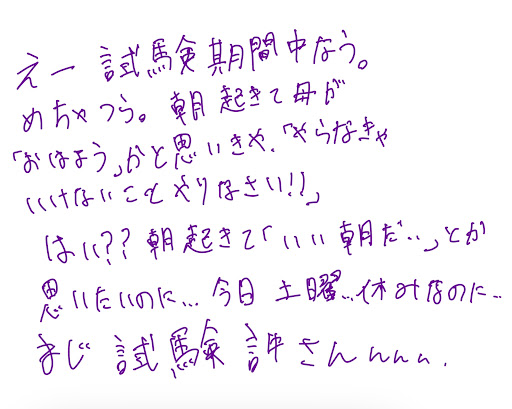 えー 試験期間中なう。
めちゃつら。朝起きて母が
「おはよう」かと思いきや、「やらなきゃ
いけないことやりなさい!!」
はい?? 朝起きて「いい朝だ..」とか
思いたいのに... 今日 土曜..休みなのに..
まじ 試験 許さんんんん.